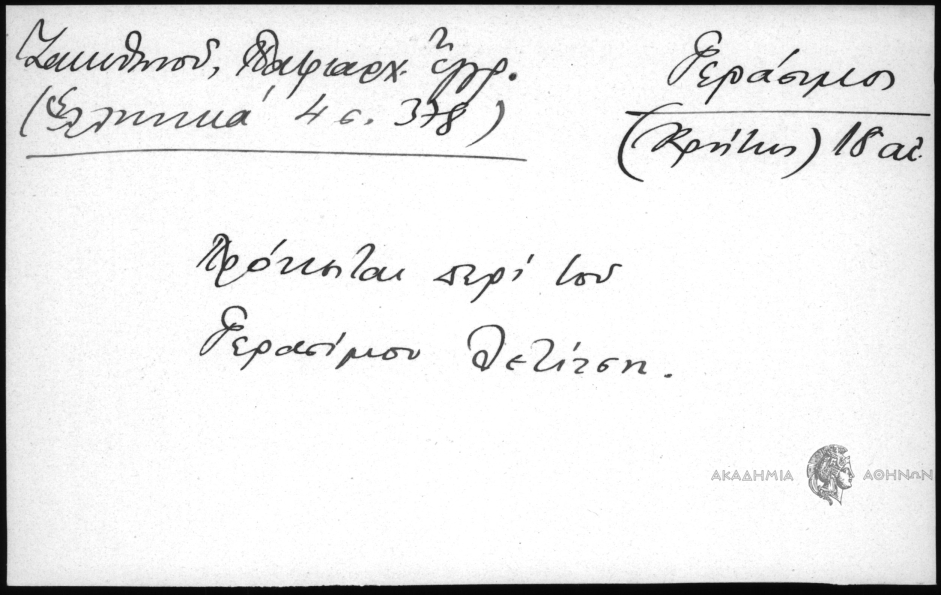 Ζακυθηνοῦ, Πατριαρχ. ἔγγρ.
(Ἑλληνικά 4 σ. 378)
Γεράσιμος
(Κρήτης) 18 αἰ.
Πρόκειται περί τοῦ
Γερασίμου Λετίτση.
ΑΚΑΔΗΜΙΑ ΑΘΗΝΩΝ